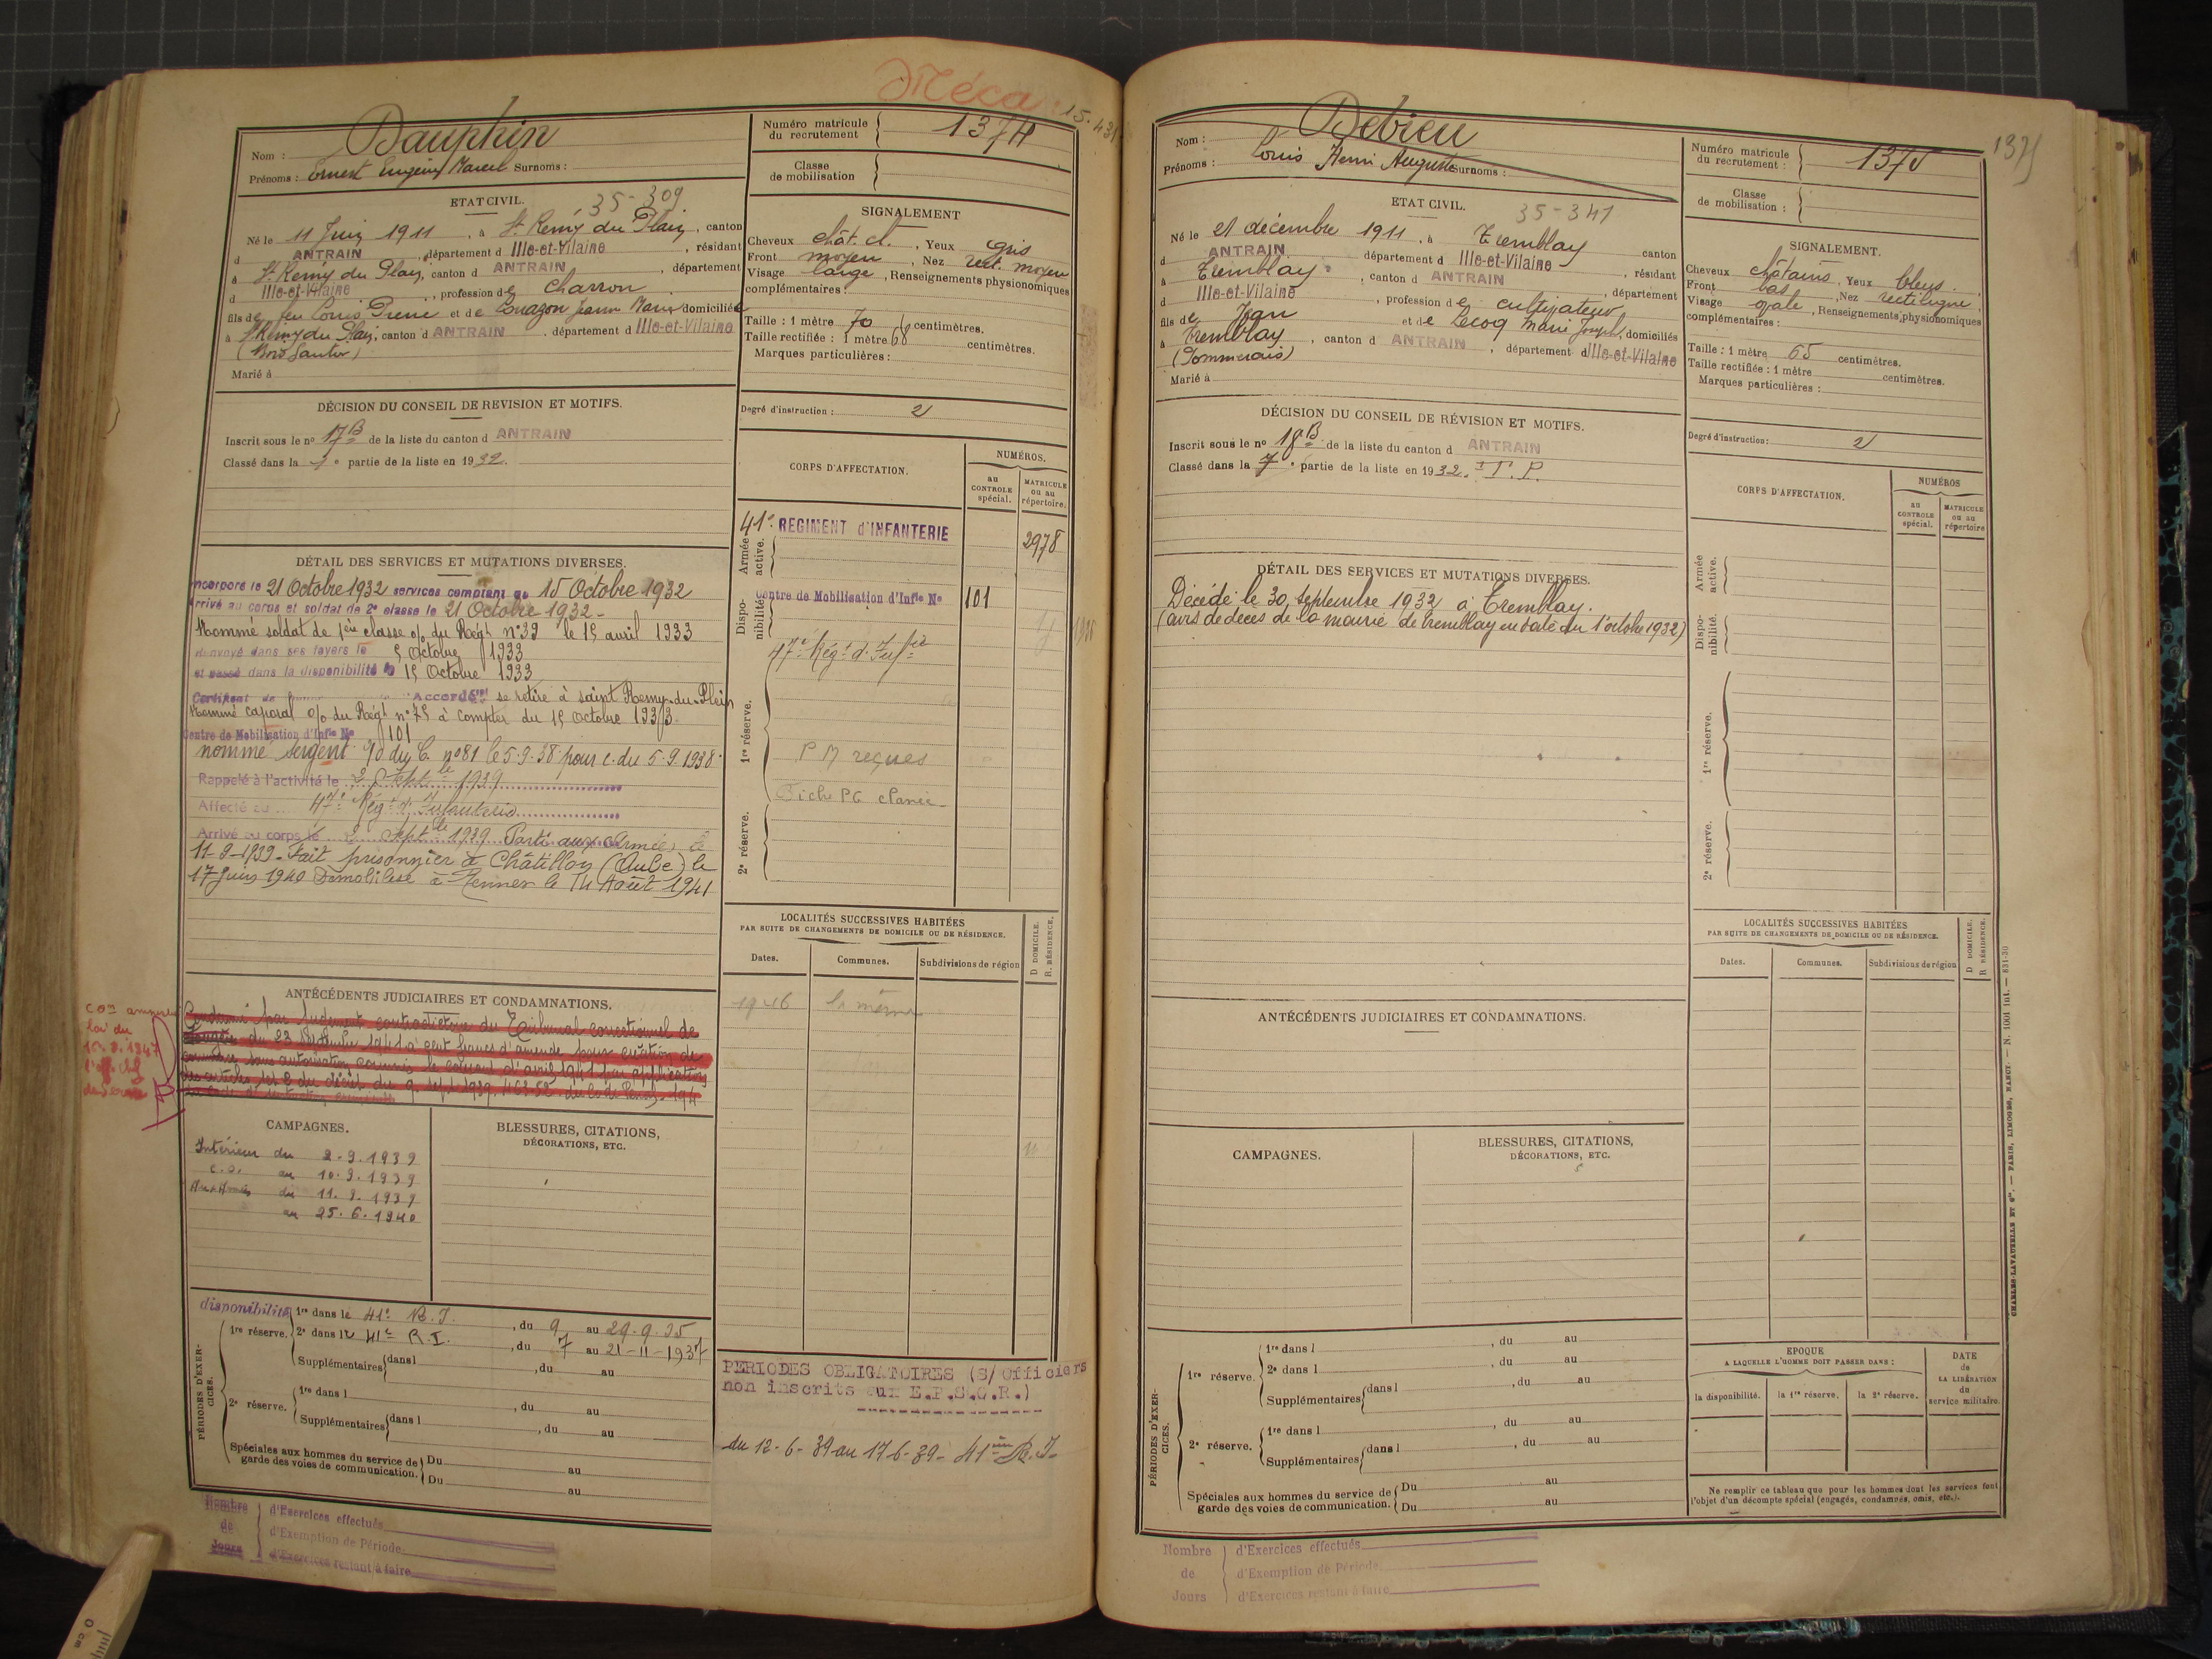 Méca
15.439
Nom : Dauphin
Prénoms : Ernest Eugène Marcel Surnoms :
Numéro matricule du recrutement 1374
Classe de mobilisation
ETAT CIVIL.
35-309
Né le 11 Juin 1911, à St Remy du Plain, canton
d ANTRAIN, département d Ille-et-Vilaine, résidant
à St Remy du Plain, canton d ANTRAIN, département
d Ille-et-Vilaine, profession de charron
fils de feu Louis Pierre et de Couazon Jeanne Marie domiciliée
à St Remy du Plain, canton d ANTRAIN, département d Ille-et-Vilaine
Marié à
SIGNALEMENT
Cheveux chât. cl., Yeux gris
Front moyen, Nez rect. moyen
Visage large, Renseignements physionomiques
complémentaires :
Taille : 1 mètre 70 centimètres.
Taille rectifiée : 1 mètre 68 centimètres.
Marques particulières :
Degré d'instruction : 2
DÉCISION DU CONSEIL DE REVISION ET MOTIFS.
Inscrit sous le no 17 B de la liste du canton d ANTRAIN
Classé dans la 1e partie de la liste en 1932.
CORPS D'AFFECTATION.
NUMÉROS.
au CONTROLE spécial.
MATRICULE ou au répertoire.
Armée active.
41e REGIMENT d'INFANTERIE 2978
Disponibilité
Centre de Mobilisation d'Infie No 101
47e Régt d'Infie
1re réserve.
P M reçues
Fiche PG
2e réserve.
DÉTAIL DES SERVICES ET MUTATIONS DIVERSES.
Incorporé le 21 Octobre 1932 services comptant du 15 Octobre 1932
Arrivé au corps et soldat de 2e classe le 21 Octobre 1932 -
Nommé soldat de 1ère classe o/ du Régt n°39 le 15 avril 1933
Renvoyé dans ses foyers le 5 Octobre 1933
et passé dans la disponibilité le 15 Octobre 1933
Certificat de Accordé se retire à saint Remy-du-Plein
Nommé caporal o/ du Régt n°75 à compter du 15 octobre 1933
Centre de Mobilisation d'Infie No 101
nommé sergent o/ du C. n°81 le 5-9-38 pour c. du 5.9.1938.
Rappelé à l'activité le 2 Septbre 1939
Affecté au 47e Régt d'Infanterie
Arrivé au corps le 2 Septbre 1939 Parti aux Armées le
11-9-1939 - Fait prisonnier à Châtillon (Aube) le
17 Juin 1940 Démobilisé à Rennes le 14 Août 1941
LOCALITÉS SUCCESSIVES HABITÉES
PAR SUITE DE CHANGEMENTS DE DOMICILE OU DE RÉSIDENCE.
D DOMICILE.
R. RÉSIDENCE.
Dates. Communes. Subdivisions de région
1946 la même
ANTÉCÉDENTS JUDICIAIRES ET CONDAMNATIONS.
Condamné par Jugement contradictoire du Tribunal correctionnel de
Fougères du 23 Septembre 1941 à cent francs d'amende pour création de
commerce sans autorisation commis le courant d'avril 1941 par application
des articles 1 et 2 du décret du 9 Sept 1939, 463-52 du Code Pénal - 194
du Code d'instruction criminelle
loi du
CAMPAGNES.
Intérieur du 2.9.1939
C.S. au 10.9.1939
Aux Armées du 11.9.1939
au 25.6.1940
BLESSURES, CITATIONS,
DÉCORATIONS, ETC.
PÉRIODES D'EXERCICES.
disponibilité 1re dans le 41e R.I., du 9 au 29.9.35
1re réserve. 2e dans le 41e R.I., du 7 au 21-11-1937
Supplémentaires dans l , du au
2e réserve. 1re dans l , du au
Supplémentaires dans l , du au
Spéciales aux hommes du service de garde des voies de communication. Du au
Du au
PERIODES OBLIGATOIRES (S/Officiers
non inscrits aux E.P.S.O.R.)
du 12-6-39 au 17-6-39 - 41ème R.I.
Nombre de Jours
d'Exercices effectués
d'Exemption de Période
d'Exercices restant à faire
1375
Nom : Debieu
Prénoms : Louis Henri Auguste Surnoms :
Numéro matricule du recrutement : 1375
Classe de mobilisation :
ETAT CIVIL.
35-341
Né le 21 décembre 1911, à Tremblay canton
d ANTRAIN département d Ille-et-Vilaine, résidant
à Tremblay, canton d ANTRAIN, département
d Ille-et-Vilaine, profession de cultivateur
fils de Jean et de Lecoq Marie Joseph, domiciliés
à Tremblay, canton d ANTRAIN, département d Ille-et-Vilaine
(Pommerais)
Marié à
SIGNALEMENT.
Cheveux châtains, Yeux bleus.
Front bas, Nez rectiligne
Visage ovale, Renseignements physionomiques
complémentaires :
Taille : 1 mètre 65 centimètres.
Taille rectifiée : 1 mètre centimètres.
Marques particulières :
Degré d'instruction : 2
DÉCISION DU CONSEIL DE RÉVISION ET MOTIFS.
Inscrit sous le no 18 B de la liste du canton d ANTRAIN
Classé dans la 7e partie de la liste en 1932. I.P.
CORPS D'AFFECTATION.
NUMÉROS
au CONTROLE spécial.
MATRICULE ou au répertoire
Armée active.
Disponibilité.
1re réserve.
2e réserve.
DÉTAIL DES SERVICES ET MUTATIONS DIVERSES.
Décédé le 30 septembre 1932 à Tremblay.
(avis de décès de la mairie de Tremblay en date du 1er octobre 1932)
LOCALITÉS SUCCESSIVES HABITÉES
PAR SUITE DE CHANGEMENTS DE DOMICILE OU DE RÉSIDENCE.
D DOMICILE.
R RÉSIDENCE.
Dates. Communes. Subdivisions de région
ANTÉCÉDENTS JUDICIAIRES ET CONDAMNATIONS.
CAMPAGNES.
BLESSURES, CITATIONS,
DÉCORATIONS, ETC.
PÉRIODES D'EXERCICES.
1re réserve. 1re dans l , du au
2e dans l , du au
Supplémentaires dans l , du au
2e réserve. 1re dans l , du au
Supplémentaires dans l , du au
Spéciales aux hommes du service de garde des voies de communication. Du au
Du au
EPOQUE
A LAQUELLE L'HOMME DOIT PASSER DANS :
la disponibilité. la 1re réserve. la 2e réserve.
DATE de LA LIBÉRATION du service militaire.
Ne remplir ce tableau que pour les hommes dont les services font
l'objet d'un décompte spécial (engagés, condamnés, omis, etc.).
CHARLES-LAVAUZELLE ET Cie. — PARIS, LIMOGES, NANCY. — N. 1001 int. — 831-30
Nombre de Jours
d'Exercices effectués
d'Exemption de Période
d'Exercices restant à faire
0 cm